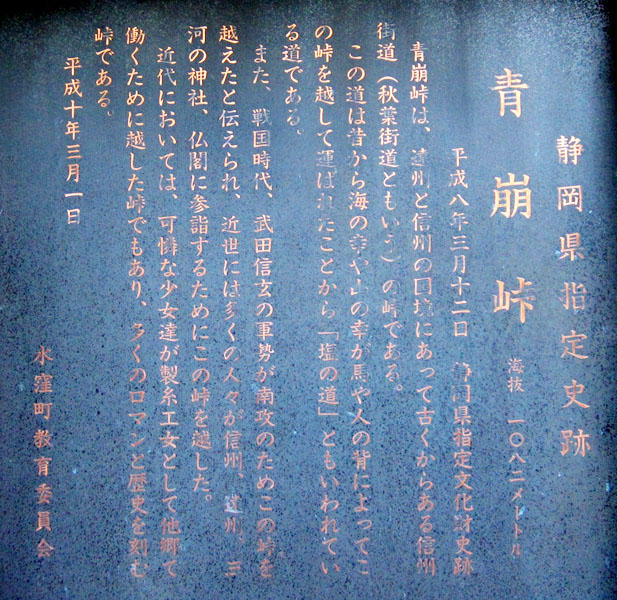 静岡県指定史跡
青崩峠 海抜 一〇八二メートル
平成八年三月十二日 静岡県指定文化財史跡
青崩峠は、遠州と信州の国境にあって古くからある信州
街道(秋葉街道ともいう)の峠である。
この道は昔から海の幸や山の幸が馬や人の背によってこ
の峠を越して運ばれたことから「塩の道」ともいわれてい
る道である。
また、戦国時代、武田信玄の軍勢が南攻のためこの峠を
越えたと伝えられ、近世には多くの人々が信州、遠州、三
河の神社、仏閣に参詣するためにこの峠を越した。
近代においては、可憐な少女達が製糸工女として他郷で
働くために越した峠でもあり、多くのロマンと歴史を刻む
峠である。
平成十年三月一日
水窪町教育委員会